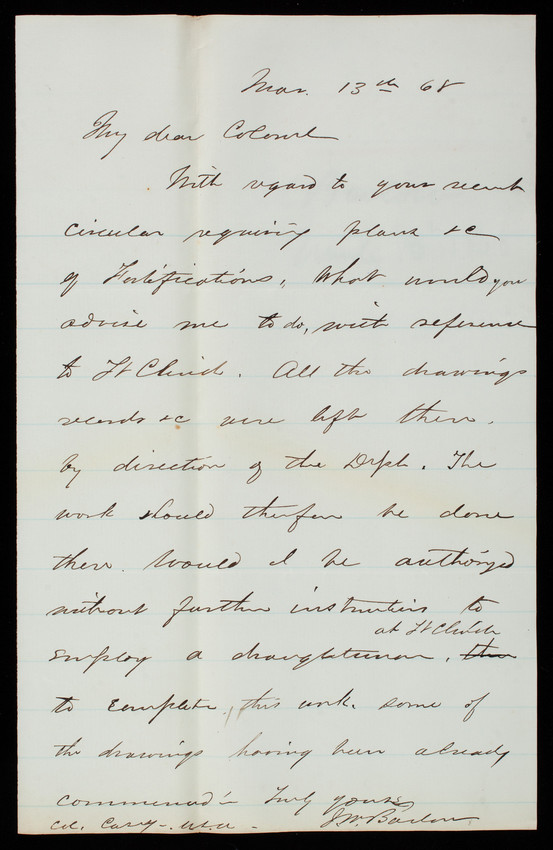 Mar. 13th 68
My dear Colonel
With regard to your recent
circular requiring plans &c
of Fortifications, What would you
advise me to do, with reference
to Ft Clinch. All the drawings
records &c were left there.
by direction of the Dept. The
work should therefore be done
there. Would I be authorized
without further instructions to
at Ft Clinch
employ a draughtsman, then
to complete, this work. some of
the drawings having been already
commenced - Truly yours
Col. Casey - U.S.A - J.W. Barlow